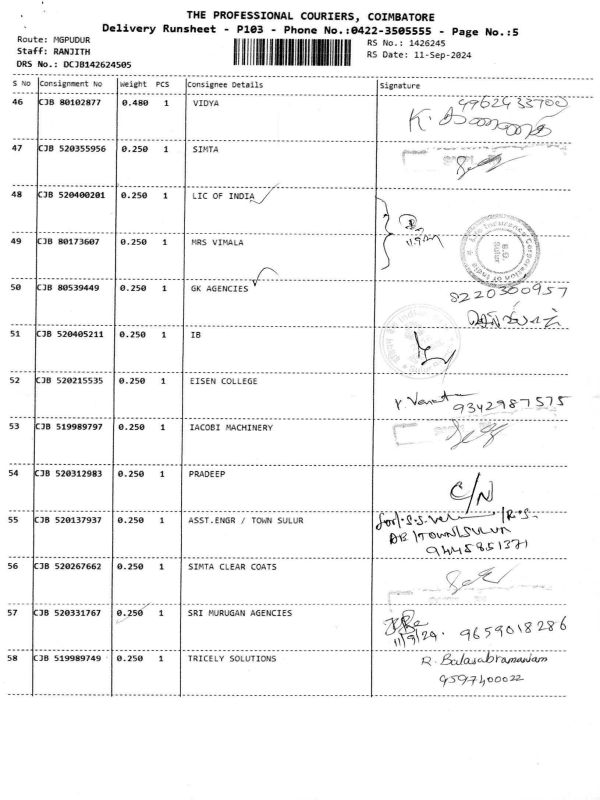 THE PROFESSIONAL COURIERS, COIMBATORE
Delivery Runsheet - P103 - Phone No.:0422-3505555 - Page No.:5
Route: MGPUDUR
Staff: RANJITH
DRS No.: DCJB142624505
RS No.: 1426245
RS Date: 11-Sep-2024
S No Consignment No Weight PCS Consignee Details Signature
46 CJB 80102877 0.480 1 VIDYA
K.
47 CJB 520355956 0.250 1 SIMTA
48 CJB 520400201 0.250 1 LIC OF INDIA
49 CJB 80173607 0.250 1 MRS VIMALA
Life Insurance Corporation of India
B.O
Sulur
50 CJB 80539449 0.250 1 GK AGENCIES
8220300957
51 CJB 520405211 0.250 1 IB
52 CJB 520215535 0.250 1 EISEN COLLEGE
9342987575
53 CJB 519989797 0.250 1 IACOBI MACHINERY
54 CJB 520312983 0.250 1 PRADEEP
C/N
55 CJB 520137937 0.250 1 ASST.ENGR / TOWN SULUR
AE/TOWN/SULUR
9445851371
56 CJB 520267662 0.250 1 SIMTA CLEAR COATS
57 CJB 520331767 0.250 1 SRI MURUGAN AGENCIES
11/9/24. 9659018286
58 CJB 519989749 0.250 1 TRICELY SOLUTIONS
R. Balasabramaniam
9597400022